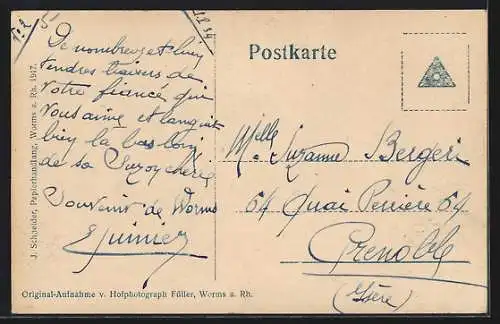 Postkarte
De nombreux et bien
tendres baisers de
votre fiancé qui
vous aime et languit
bien là bas loin
de sa Suzy chérie
Souvenir de Worms
Mlle Suzanne Bergeri
64 Quai Perrière 64
Grenoble
(Isère)
J. Schneider, Papierhandlung, Worms a. Rh. 1917.
Original-Aufnahme v. Hofphotograph Füller, Worms a. Rh.